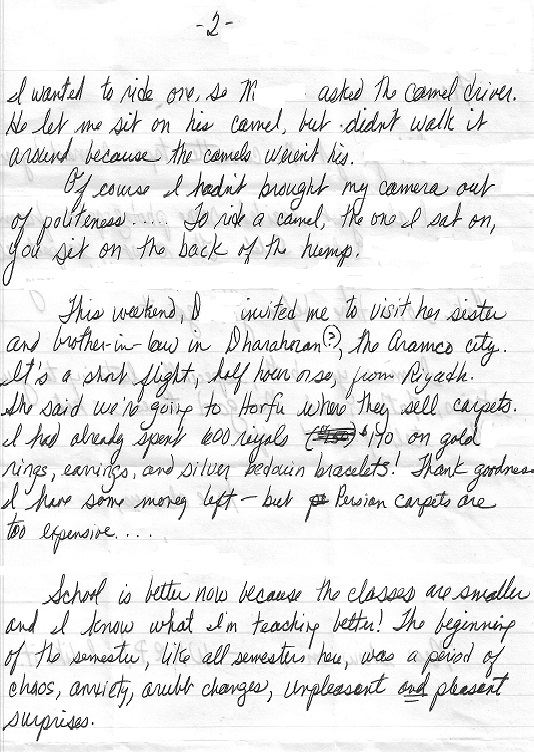 -2-
I wanted to ride one, so M asked the camel driver.
He let me sit on his camel, but didn't walk it
around because the camels weren't his.
Of course I hadn't brought my camera out
of politeness..... To ride a camel, the one I sat on,
you sit on the back of the hump.
This weekend, D invited me to visit her sister
and brother-in-law in Dharahoran(?), the Aramco city.
It's a short flight, half hour or so, from Riyadh.
She said we're going to Horfu where they sell carpets.
I had already spent 600 reiyals $170 on gold
rings, earrings, and silver bedouin bracelets! Thank goodness
I have some money left - but Persian carpets are
too expensive....
School is better now because the classes are smaller
and I know what I'm teaching better! The beginning
of the semester, like all semesters here, was a period of
chaos, anxiety, changes, unpleasant and pleasant
surprises.